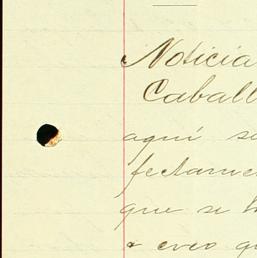 Noticia
Caball
aquí se
fectame
que se h
creo q